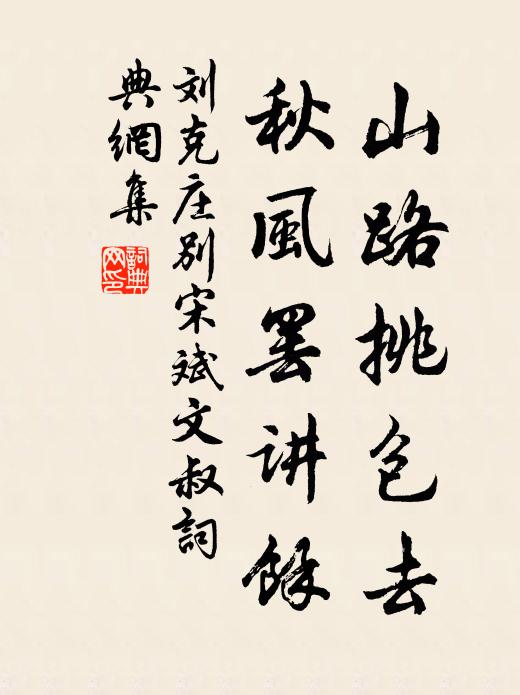 山路挑包去
秋風罢讲餘
刘克庄别宋斌文叔詞
典網集
詞典网印